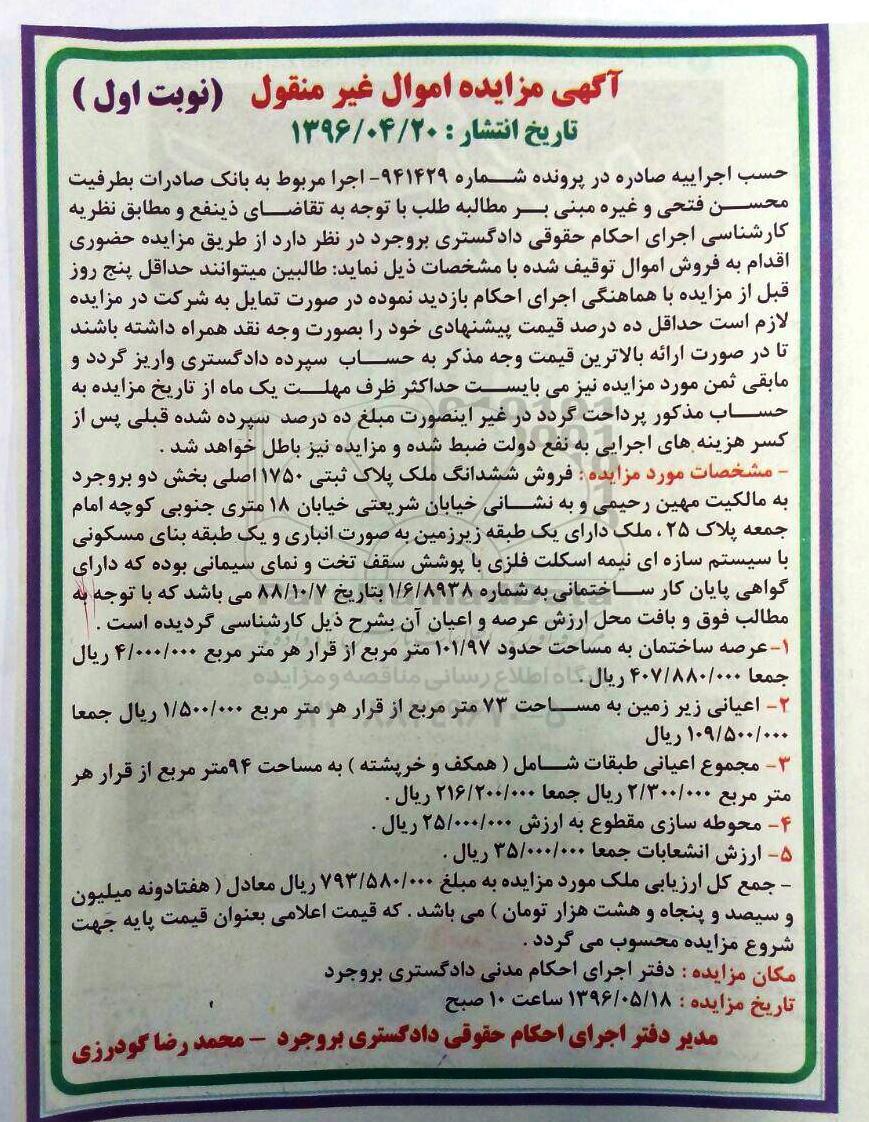 آگهی مزایده اموال غیر منقول (نوبت اول )
تاریخ انتشار : ۱۳۹۶/۰۴/۲۰
حسب اجراییه صادره در پرونده شماره ۹۴۱۴۲۹- اجرا مربوط به بانک صادرات بطرفیت
محسن فتحی و غیره مبنی بر مطالبه طلب با توجه به تقاضای ذینفع و مطابق نظریه
کارشناسی اجرای احکام حقوقی دادگستری بروجرد در نظر دارد از طریق مزایده حضوری
اقدام به فروش اموال توقیف شده با مشخصات ذیل نماید: طالبین میتوانند حداقل پنج روز
قبل از مزایده با هماهنگی اجرای احکام بازدید نموده در صورت تمایل به شرکت در مزایده
لازم است حداقل ده درصد قیمت پیشنهادی خود را بصورت وجه نقد همراه داشته باشند
تا در صورت ارائه بالاترین قیمت وجه مذکر به حساب سپرده دادگستری واریز گردد و
مابقی ثمن مورد مزایده نیز می بایست حداکثر ظرف مهلت یک ماه از تاریخ مزایده به
حساب مذکور پرداخت گردد در غیر اینصورت مبلغ ده درصد سپرده شده قبلی پس از
کسر هزینه های اجرایی به نفع دولت ضبط شده و مزایده نیز باطل خواهد شد .
- مشخصات مورد مزایده : فروش ششدانگ ملک پلاک ثبتی ۱۷۵۰ اصلی بخش دو بروجرد
به مالکیت مهین رحیمی و به نشانی خیابان شریعتی خیابان ۱۸ متری جنوبی کوچه امام
جمعه پلاک ۲۵ ، ملک دارای یک طبقه زیرزمین به صورت انباری و یک طبقه بنای مسکونی
با سیستم سازه ای نیمه اسکلت فلزی با پوشش سقف تخت و نمای سیمانی بوده که دارای
گواهی پایان کار ساختمانی به شماره ۱/۶/۸۹۳۸ بتاریخ ۸۸/۱۰/۷ می باشد که با توجه به
مطالب فوق و بافت محل ارزش عرصه و اعیان آن بشرح ذیل کارشناسی گردیده است .
۱-عرصه ساختمان به مساحت حدود ۱۰۱/۹۷ متر مربع از قرار هر متر مربع ۴/۰۰۰/۰۰۰ ریال
جمعا ۴۰۷/۸۸۰/۰۰۰ ریال .
۲- اعیانی زیر زمین به مساحت ۷۳ متر مربع از قرار هر متر مربع ۱/۵۰۰/۰۰۰ ریال جمعا
۱۰۹/۵۰۰/۰۰۰ ریال
۳- مجموع اعیانی طبقات شامل ( همکف و خرپشته ) به مساحت ۹۴متر مربع از قرار هر
متر مربع ۲/۳۰۰/۰۰۰ ریال جمعا ۲۱۶/۲۰۰/۰۰۰ ریال .
۴- محوطه سازی مقطوع به ارزش ۲۵/۰۰۰/۰۰۰ ریال .
۵- ارزش انشعابات جمعا ۳۵/۰۰۰/۰۰۰ ریال .
- جمع کل ارزیابی ملک مورد مزایده به مبلغ ۷۹۳/۵۸۰/۰۰۰ ریال معادل ( هفتادونه میلیون
و سیصد و پنجاه و هشت هزار تومان ) می باشد . که قیمت اعلامی بعنوان قیمت پایه جهت
شروع مزایده محسوب می گردد .
مکان مزایده : دفتر اجرای احکام مدنی دادگستری بروجرد
تاریخ مزایده : ۱۳۹۶/۰۵/۱۸ ساعت ۱۰ صبح
مدیر دفتر اجرای احکام حقوقی دادگستری بروجرد - محمد رضا گودرزی